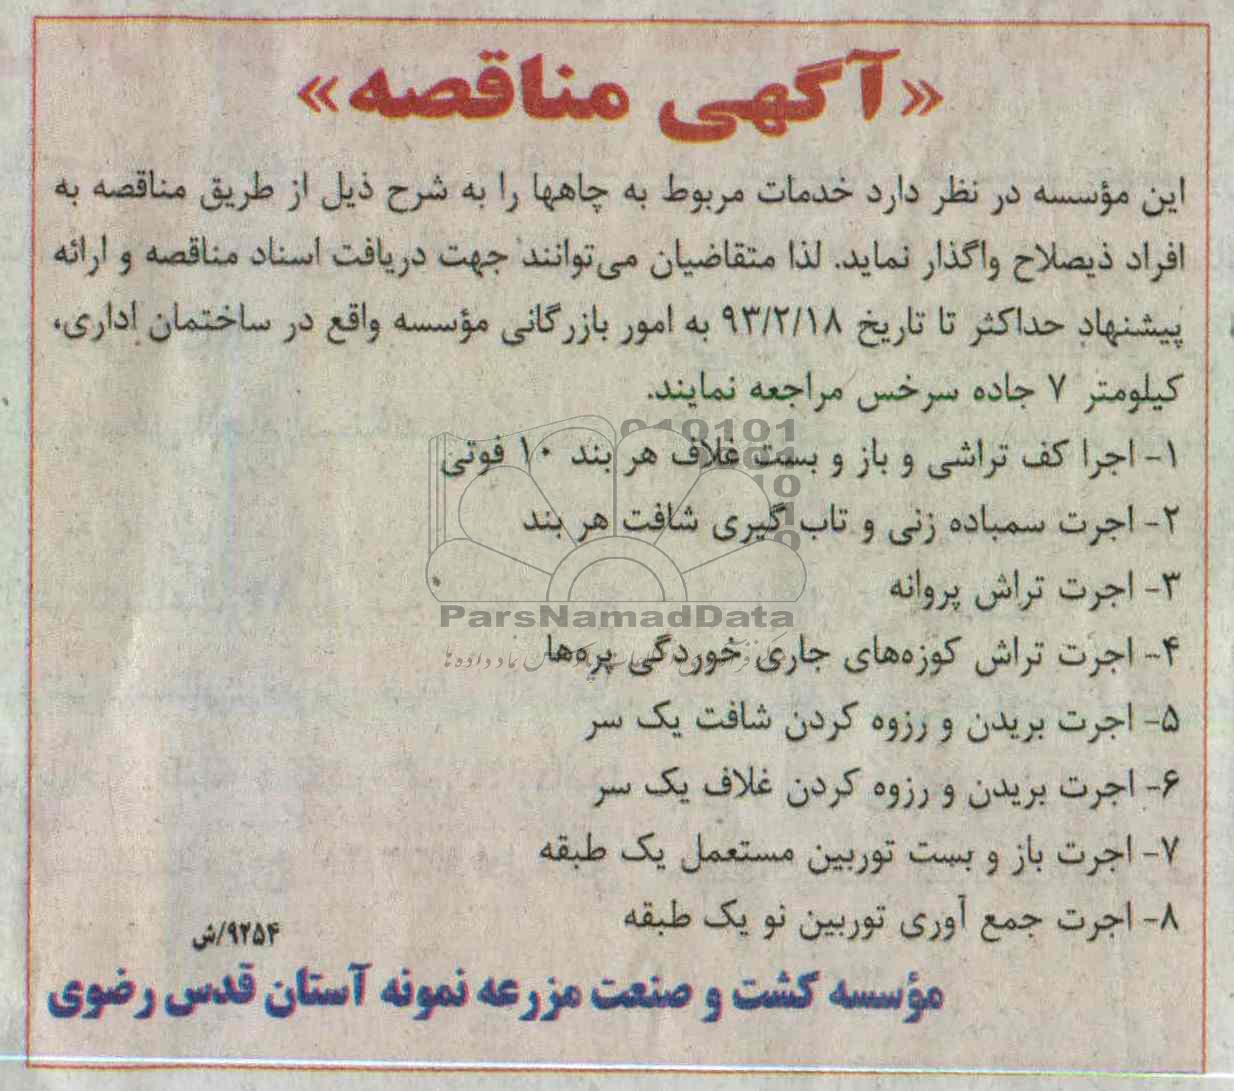 «آگهی مناقصه»
این مؤسسه در نظر دارد خدمات مربوط به چاهها را به شرح ذیل از طریق مناقصه به
افراد ذیصلاح واگذار نماید. لذا متقاضیان می‌توانند جهت دریافت اسناد مناقصه و ارائه
پیشنهاد حداکثر تا تاریخ ۹۳/۲/۱۸ به امور بازرگانی مؤسسه واقع در ساختمان اداری،
کیلومتر ۷ جاده سرخس مراجعه نمایند.
۱- اجرا کف تراشی و باز و بست غلاف هر بند ۱۰ فوتی
۲- اجرت سمباده زنی و تاب گیری شافت هر بند
۳- اجرت تراش پروانه
ParsNamadData
۴- اجرت تراش کوزه‌های جاری خوردگی پره‌ها
۵- اجرت بریدن و رزوه کردن شافت یک سر
۶- اجرت بریدن و رزوه کردن غلاف یک سر
۷- اجرت باز و بست توربین مستعمل یک طبقه
۸- اجرت جمع آوری توربین نو یک طبقه
۹۲۵۴/ش
مؤسسه کشت و صنعت مزرعه نمونه آستان قدس رضوی